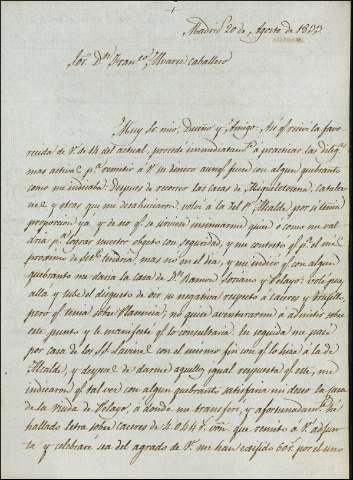 Madrid 20 de Agosto de 1833
Sor. Dn. Franco. Alvarez Caballero.
Muy Sr. mio, Dueño y Amigo: Asi qe. recivi la favo-
recida de V. de 14 del actual, procedí inmediatamte. á practicar las dilign.
mas activas pa. remitir á V. su dinero aunqe. fuese con algun quebranto
como me indicaba: despues de recorrer las casas de
y otras que me desahuciaron, volví á la del Sr. Alcalde por si tenia
proporcion ya, y de no qe. se sirviese insinuarme quien ó como me val-
dria pa. lograr nuestro objeto con seguridad, y me contestó qe. pa. el mes
proximo de Setbre. tendria, mas no en el dia, y me indicó qe. con algun
quebranto me daria la casa de Dn. Ramon Soriano y Pelayo: volé pa.
allá y tube el disgusto de oir su negativa respeto á Caceres y Trugillo,
pero qe. tenia sobre Plasencia; no quise aventurarme á admitir sobre
este punto y le manifesté qe. lo consultaria. En seguida me pasé
por casa de los SS. con el mismo fin con qe. lo hice á la de
Alcalde, y despues de darme aquellos igual respuesta qe. este, me
indicaron qe. tal vez con algun quebranto satisfaria mi deseo la casa
de la Viuda de Pelayo, á donde me transferí, y afortunadamte. he
hallado letra sobre Caceres de 4.044 rs. von. que remito á V. adjun-
ta y celebraré sea del agrado de V. me han exigido 60 rs. por el uno